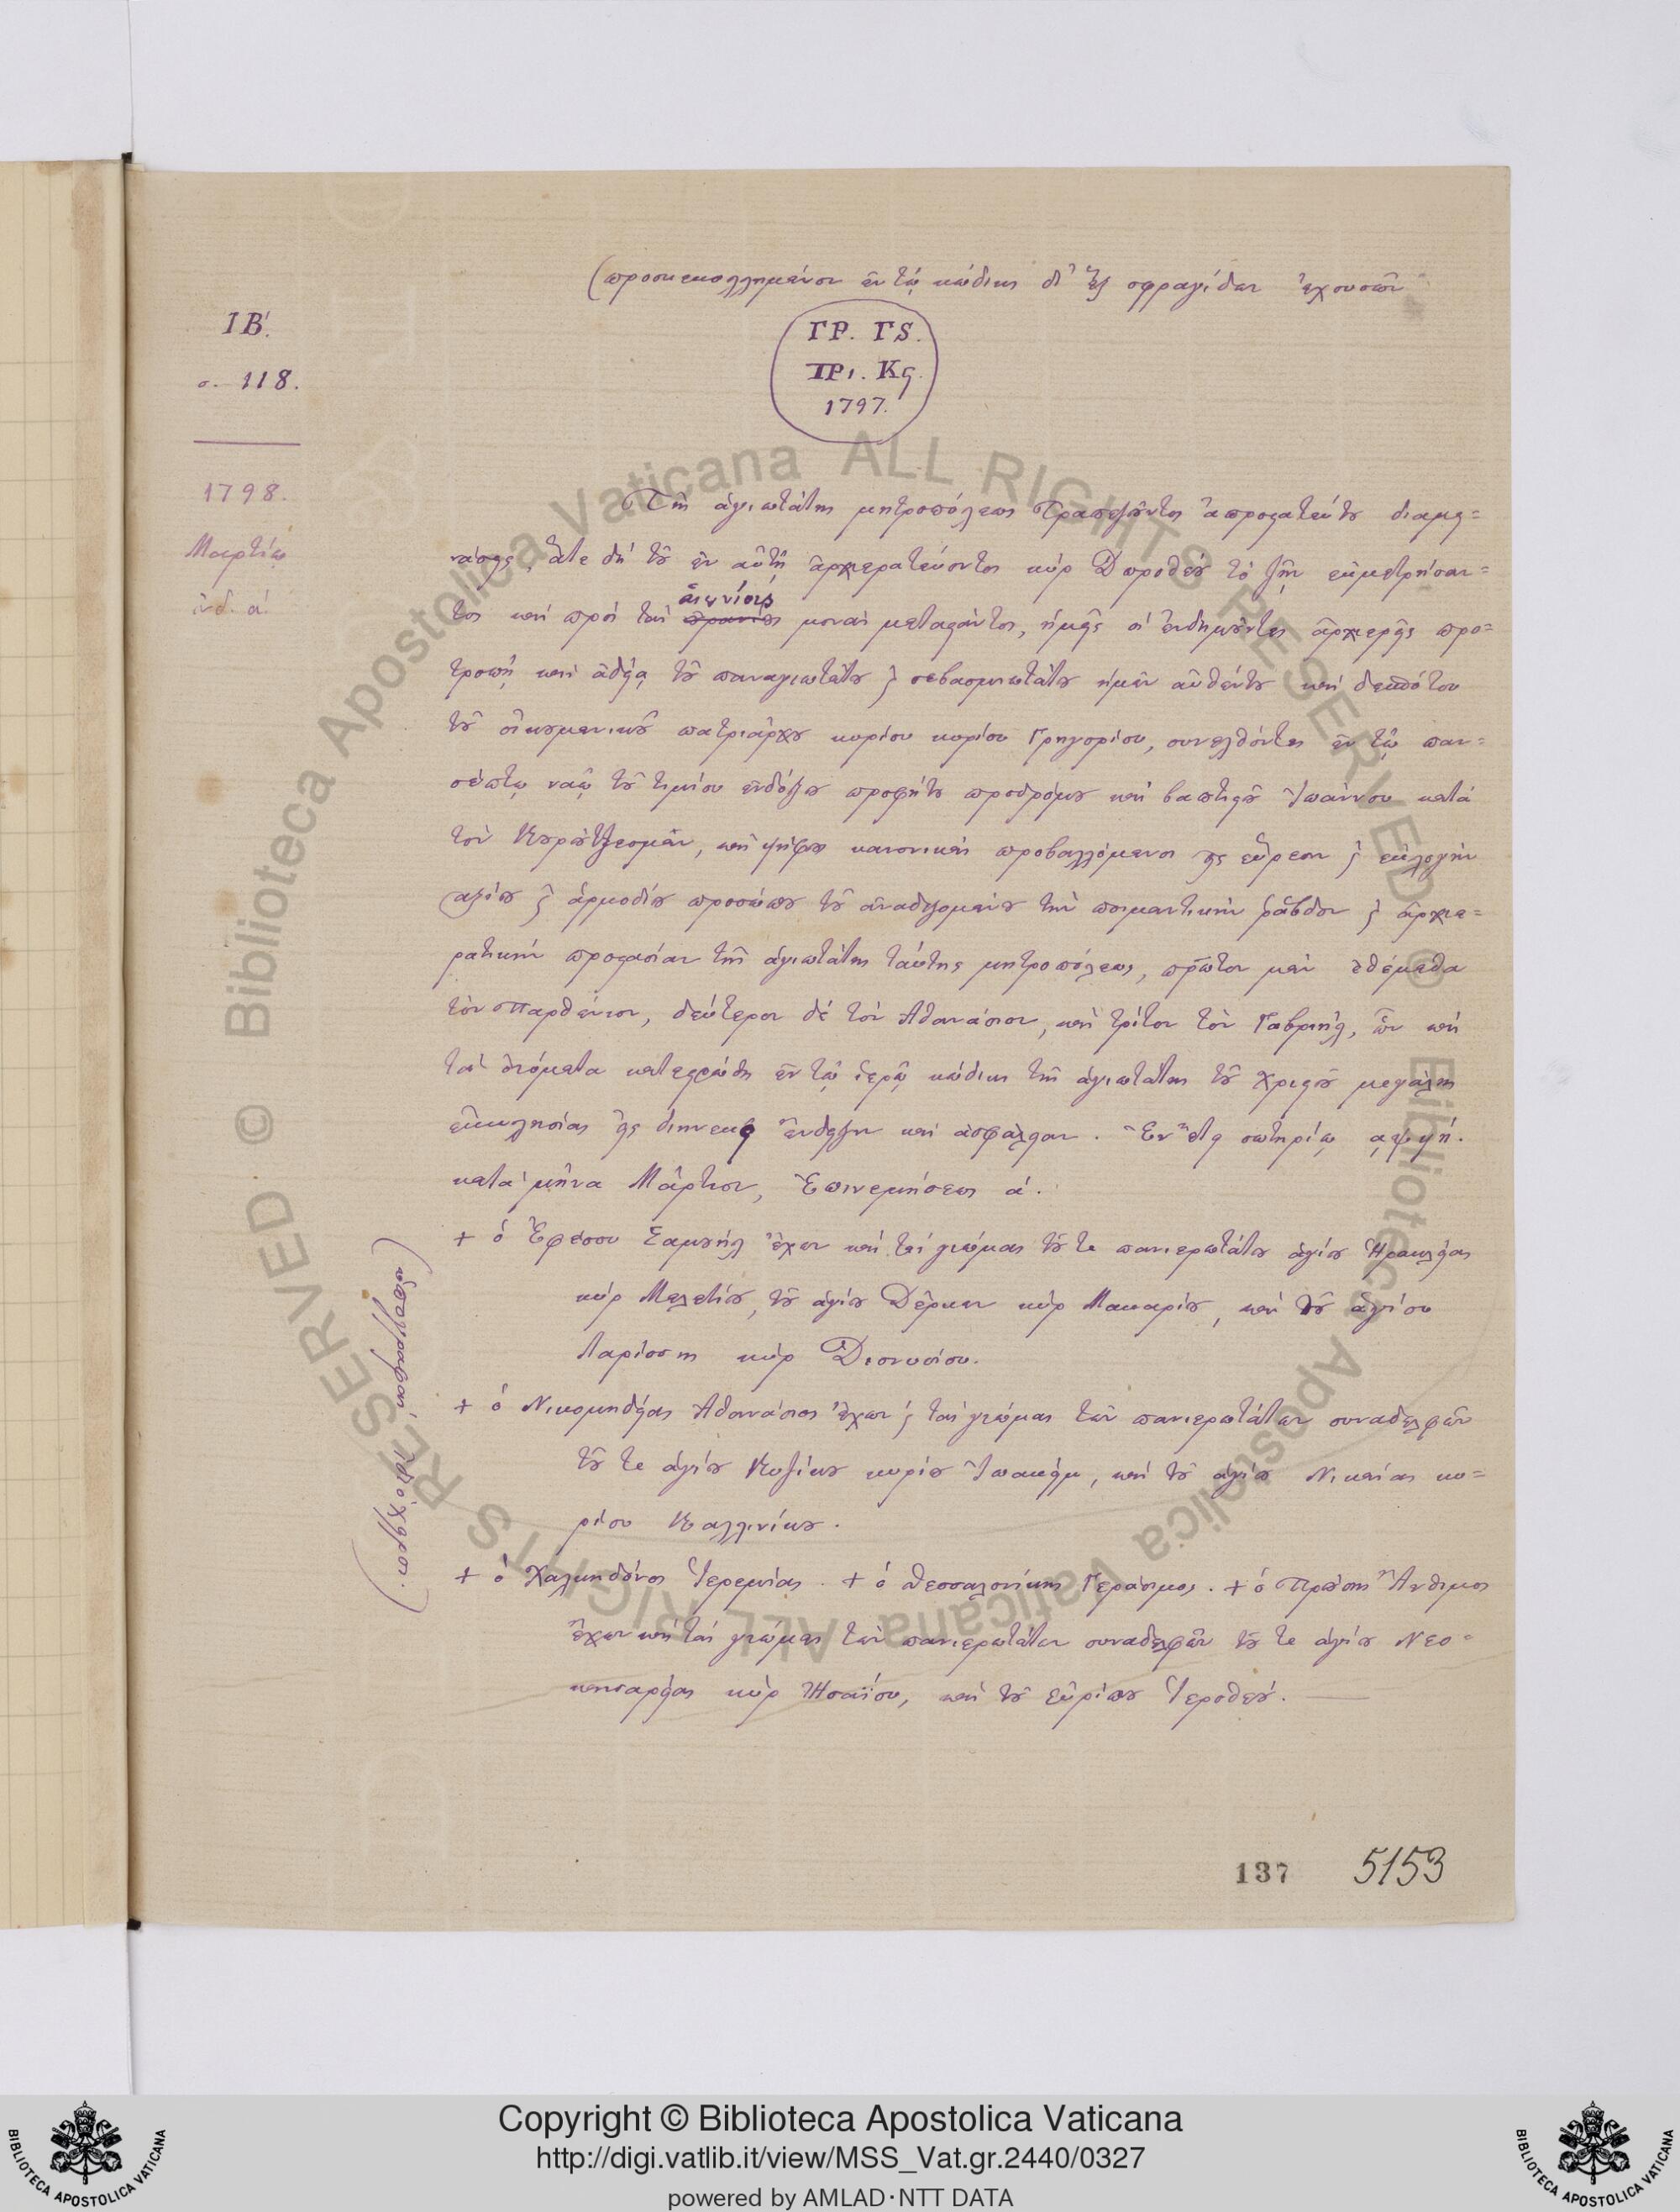 (προσκεκολλημένον ἐν τῷ κώδικι δι' ἓξ σφραγίδων ἐχουσῶν
ΓΡ. ΓϚ.
ΠΡι. Κς.
1797.
ΙΒ'.
σ. 118.
1798.
Μαρτίῳ
ἰνδ. α'.
Τῆς ἁγιωτάτης μητροπόλεως Τραπεζοῦντος ἀπροστατεύτου διαμει=
νάσης, ἅτε δὴ τοῦ ἐν αὐτῇ ἀρχιερατεύοντος κὺρ Δωροθέου τὸ ζῆν ἐκμετρήσαν=
τος καὶ πρὸς τὰς αἰωνίους μονὰς μεταστάντος, ἡμεῖς οἱ ἐνδημοῦντες ἀρχιερεῖς προ=
τροπῇ καὶ ἀδείᾳ τοῦ παναγιωτάτου ϗ σεβασμιωτάτου ἡμῶν αὐθέντου καὶ δεσπότου
τοῦ οἰκουμενικοῦ πατριάρχου κυρίου κυρίου Γρηγορίου, συνελθόντες ἐν τῷ παν=
σέπτῳ ναῷ τοῦ τιμίου ἐνδόξου προφήτου προδρόμου καὶ βαπτιστοῦ Ἰωάννου κατὰ
τὸν Κουροῦτζεσμὲν, καὶ ψήφους κανονικὰς προβαλλόμενοι εἰς εὕρεσιν ϗ ἐκλογὴν
ἀξίου ϗ ἁρμοδίου προσώπου τοῦ ἀναδεξομένου τὴν ποιμαντικὴν ῥάβδον ϗ ἀρχιε=
ρατικὴν προστασίαν τῆς ἁγιωτάτης ταύτης μητροπόλεως, πρῶτον μὲν ἐθέμεθα
τὸν Παρθένιον, δεύτερον δὲ τὸν Ἀθανάσιον, καὶ τρίτον τὸν Γαβριὴλ, ὧν καὶ
τὰ ὀνόματα κατεστρώθη ἐν τῷ ἱερῷ κώδικι τῆς ἁγιωτάτης τοῦ Χριστοῦ μεγάλης
ἐκκλησίας εἰς διηνεκῆ ἔνδειξιν καὶ ἀσφάλειαν. Ἐν ἔτει σωτηρίῳ ͵αψϟη'.
κατὰ μῆνα Μάρτιον, Ἐπινεμήσεως α'.
+ ὁ Ἐφέσου Σαμουὴλ ἔχων καὶ τὰς γνώμας τοῦ τε πανιερωτάτου ἁγίου Ἡρακλείας
κὺρ Μελετίου, τοῦ ἁγίου Δέρκων κὺρ Μακαρίου, καὶ τοῦ ἁγίου
Λαρίσσης κὺρ Διονυσίου.
+ ὁ Νικομηδείας Ἀθανάσιος ἔχων ϗ τὰς γνώμας τῶν πανιερωτάτων συναδελφῶν
τοῦ τε ἁγίου Κυζίκου κυρίου Ἰωακεὶμ, καὶ τοῦ ἁγίου Νικαίας κυ=
ρίου Καλλινίκου.
+ ὁ Χαλκηδόνος Ἱερεμίας. + ὁ Θεσσαλονίκης Γεράσιμος. + ὁ Προύσης Ἄνθιμος
ἔχων καὶ τὰς γνώμας τῶν πανιερωτάτων συναδελφῶν τοῦ τε ἁγίου Νεο=
καισαρείας κὺρ Ἡσαΐου, καὶ τοῦ Εὐρίπου Ἱεροθέου.
137 5153
Copyright © Biblioteca Apostolica Vaticana
http://digi.vatlib.it/view/MSS_Vat.gr.2440/0327
powered by AMLAD·NTT DATA
BIBLIOTECA APOSTOLICA VATICANA
BIBLIOTECA APOSTOLICA VATICANA
© Biblioteca Apostolica Vaticana ALL RIGHTS RESERVED
© Biblioteca Apostolica Vaticana ALL RIGHTS RESERVED